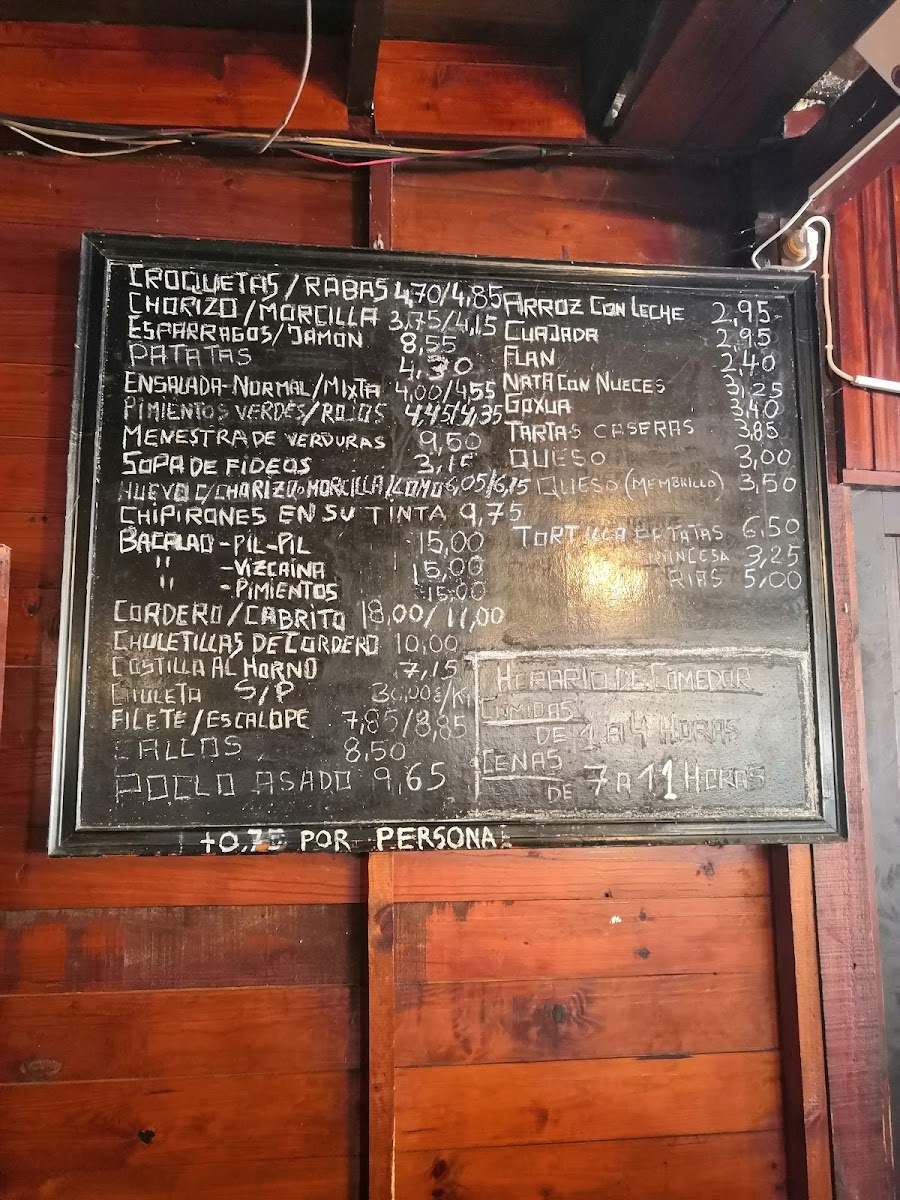 CROQUETAS/RABAS 4,70/4,85
CHORIZO/MORCILLA 3,75/4,15
ESPARRAGOS/JAMON 8,55
PATATAS 4,30
ENSALADA-NORMAL/MIXTA 4,00/4,55
PIMIENTOS VERDES/ROJOS 4,45/4,35
MENESTRA DE VERDURAS 9,50
SOPA DE FIDEOS
HUEVO C/CHORIZO o MORCILLA/LOMO 6,05/6,15
CHIPIRONES EN SU TINTA 9,75
BACALAO-PIL-PIL 15,00
" -VIZCAINA 15,00
" -PIMIENTOS 15,00
CORDERO/CABRITO 18,00/11,00
CHULETILLAS DE CORDERO 10,00
COSTILLA AL HORNO 7,15
CHULETA S/P
FILETE/ESCALOPE 7,85/8,85
CALLOS 8,50
POLLO ASADO 9,65
ARROZ CON LECHE 2,95
CUAJADA 2,95
FLAN 2,40
NATA CON NUECES 3,25
GOXUA 3,40
TARTAS CASERAS 3,85
QUESO 3,00
QUESO (MEMBRILLO) 3,50
TORTILLA DE PATATAS 6,50
3,25
5,00
HORARIO DE COMEDOR
COMIDAS
DE 1 A 4 HORAS
CENAS
DE 7 A 11 HORAS
POR PERSONA